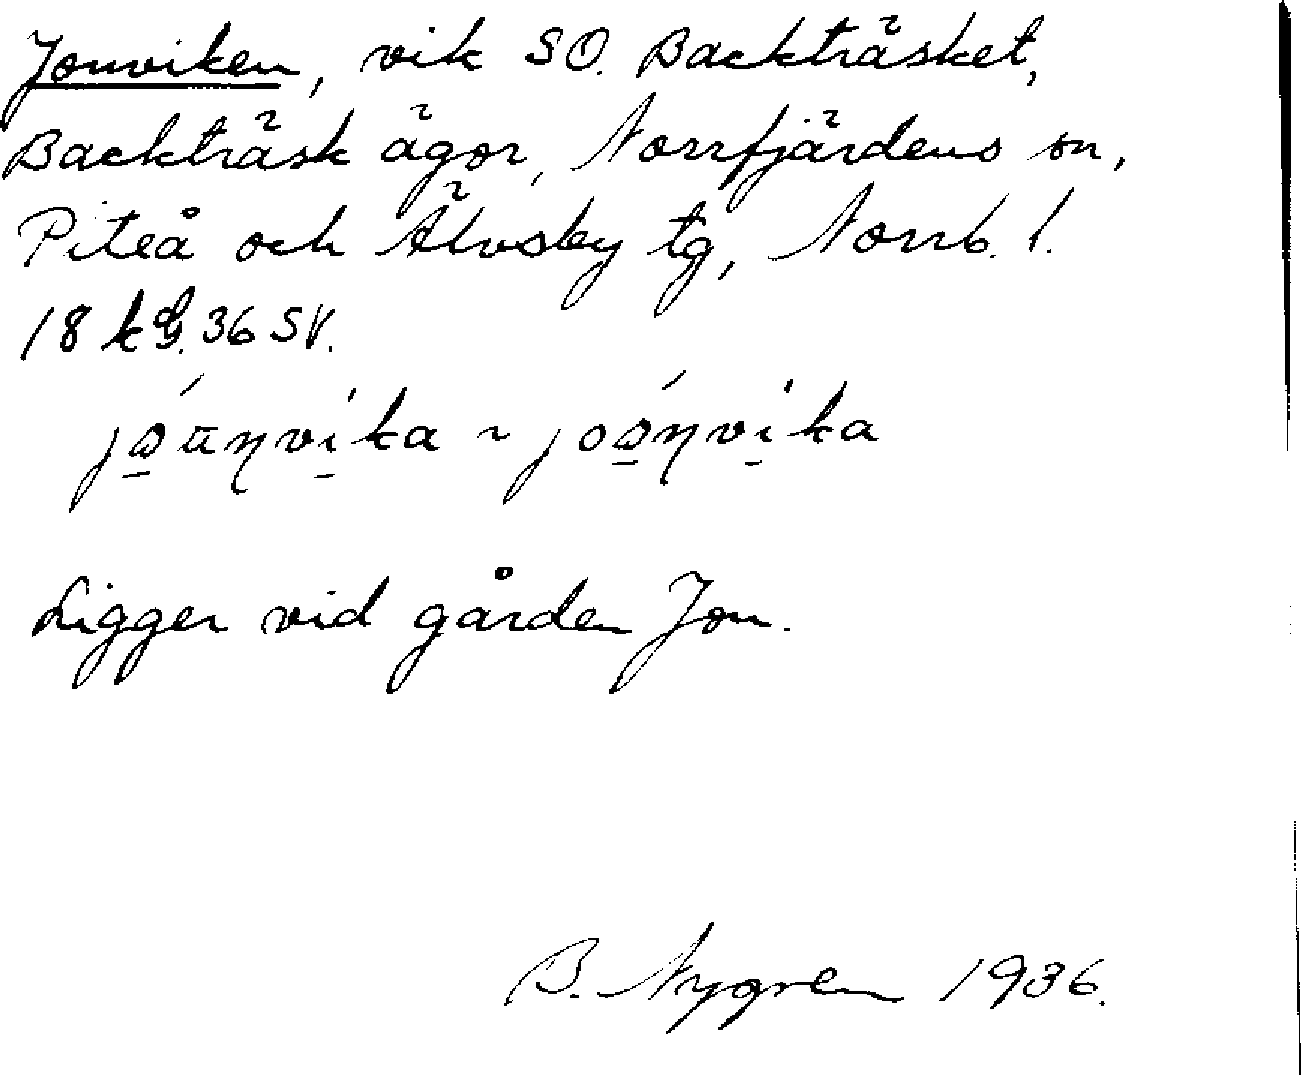 Jonviken, vik SO. Backträsket,
Backträsk ägor, Norrfjärdens sn,
Piteå och Älvsby tg, Norrb. l.
18 k 36 SV.
Ligger vid gården Jon.
B. Nygren 1936.